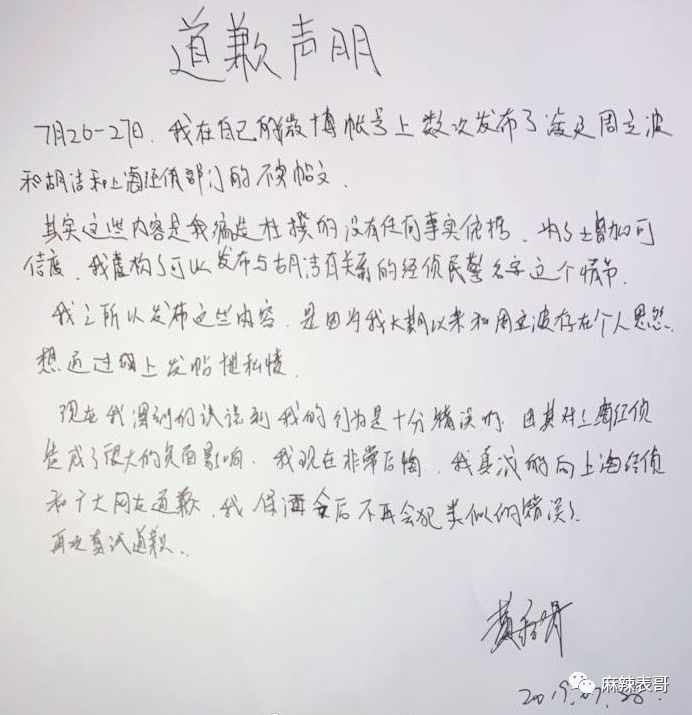 道歉声明
7月26-27日,我在自己的微博帐号上数次发布了涉及周立波
和胡洁和上海经侦部门的不实帖文.
其实这些内容是我编造杜撰的没有任何事实依据,为了增加可
信度,我虚构了可以发布与胡洁有关系的经侦民警名字这个情节.
我之所以发布这些内容,是因为我长期以来和周立波存在个人恩怨.
想通过网上发帖泄私愤.
现在我深刻的认识到我的行为是十分错误的,尤其对上海经侦
造成了很大的负面影响.我现在非常后悔,我真诚的向上海经侦
和广大网友道歉,我保证今后不再会犯类似的错误!
再次真诚道歉.
2019.07.28
麻辣表哥